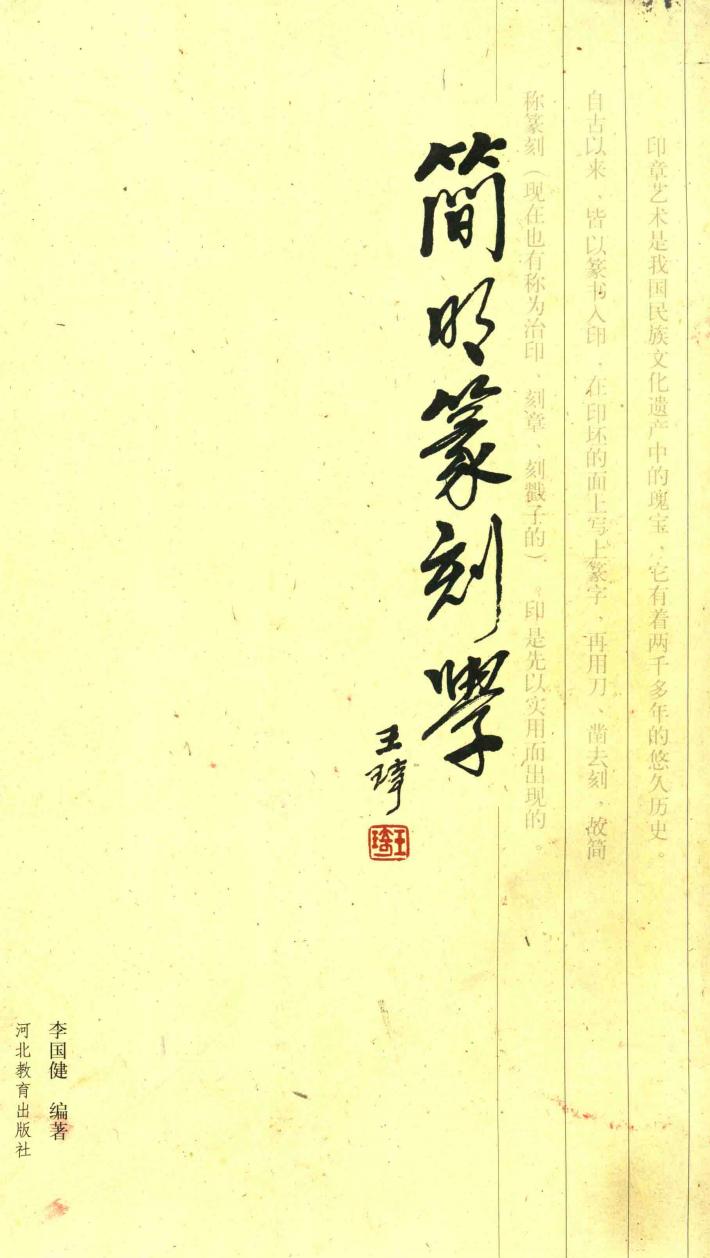 印章艺术是我国民族文化遗产中的瑰宝、它有着两千多年的悠久历史。
自古以来、皆以篆书入印、在印坯的面上写上篆字、再用刀、凿去刻，故简
称篆刻（现在也有称为治印、刻章、刻戳子的）。印是先以实用而出现的。
簡明篆刻學
王琦
王琦
李国健 编著
河北教育出版社